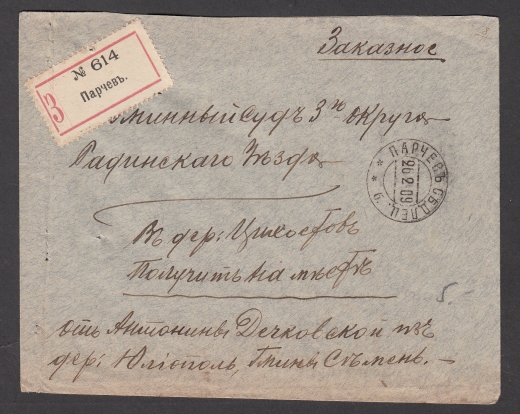 Заказное
№ 614
Парчевъ.
З
Гминный Судъ 3го округа
Радинскаго Уѣзда
ПАРЧЕВЪ СѢДЛЕЦ. Г.
26.2.09
Въ дер:
Получить на мѣстѣ
5.-
отъ Антонины Дечковской изъ
дер: Юліополь, Гмины Сѣмень.-